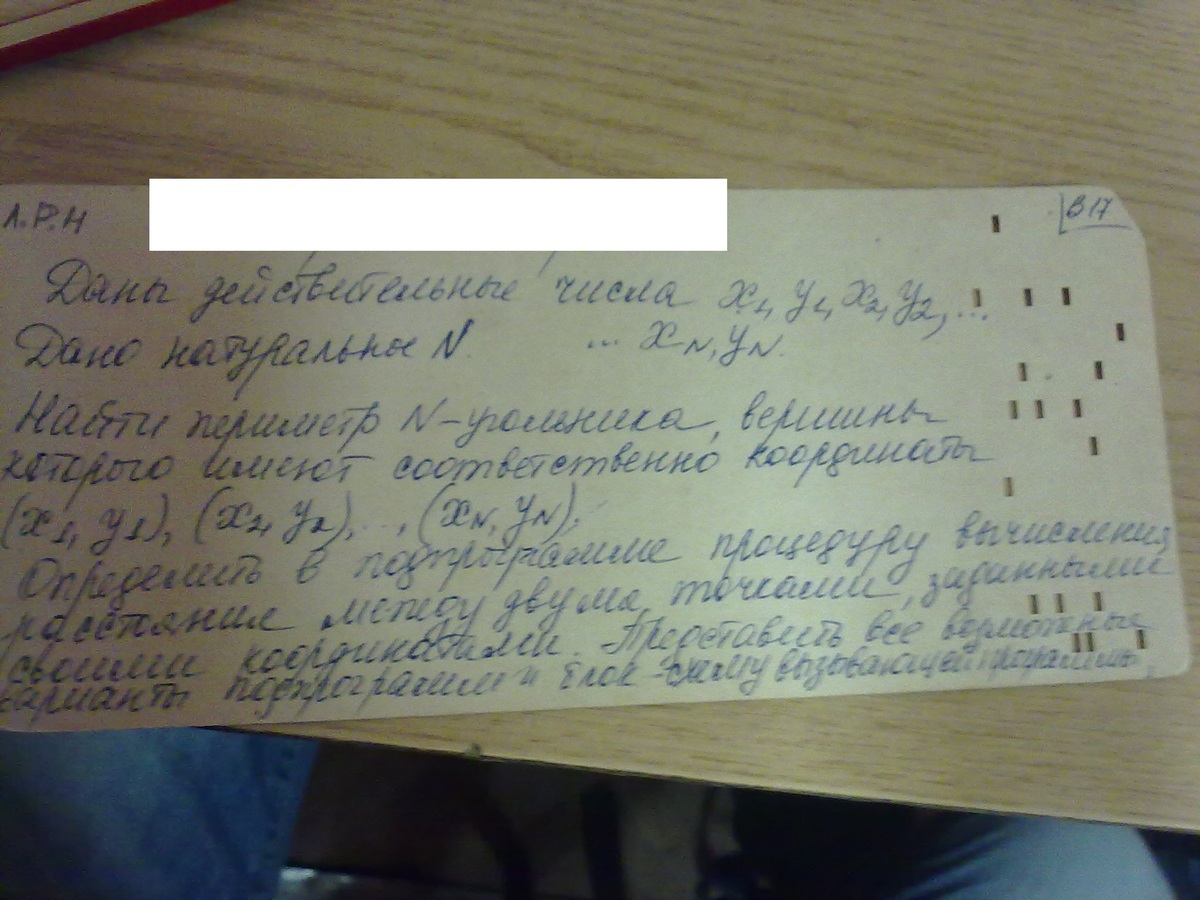 Л.Р.Н
В 17
Даны действительные числа x1, y1, x2, y2, ...
Дано натуральные N. ... xN, yN.
Найти периметр N-угольника, вершины
которого имеют соответственно координаты
(x1, y1), (x2, y2), ..., (xN, yN).
Определить в подпрограмме процедуру вычисления
расстояния между двумя точками, заданными
своими координатами. Представить все возможные
варианты подпрограмм и блок-схему вызывающей программы.